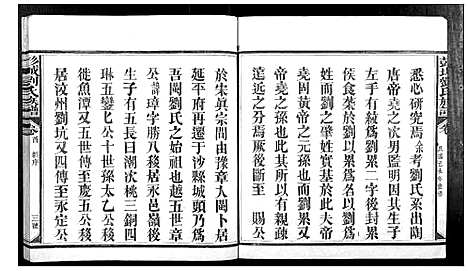 悉心研究焉余考劉氏系出
唐帝堯之次男監明因其生
而手有文以劉累二字後封
侯食采於劉故以劉爲
姓而劉之受姓基於此夫帝
堯黃帝之元孫也而劉累
帝堯之子也此其所以有親疎
遠近之分焉厥後至 賜公
於宋真宗間由豫章入閩卜居
前後再還于沙縣城頭乃爲
吾閩劉氏之祖也越五世章
公諱璋字于勝公移居
生子有五長曰潮次桃三銅四
琳五鑾匕公十世孫太乙公移
鹿魚潭又五世至慶五公移
居汶州劉坑又四世
彭城劉氏族譜
卷首
三